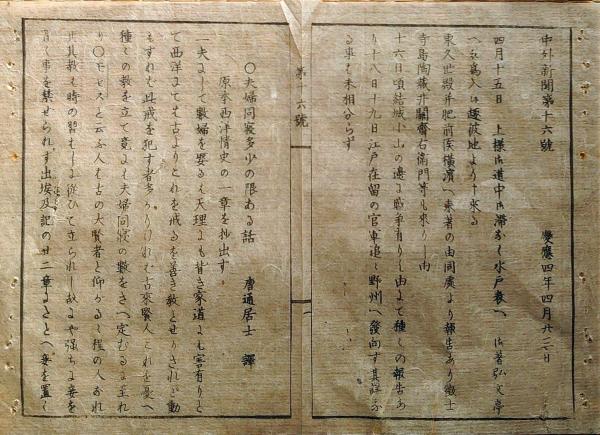 中外新聞第十六號　慶應四年四月廿二日
四月十五日　上様御道中御滞なく水戸表へ　御着弘文亭
へ被為入　彼地より申来る
東久世殿并肥前侯横濱へ来着の由同處より報告あり徴士
寺島陶蔵井關齋右衛門等も来りし由
十六日頃結城小山の邊に戦争有りし由にて種々の報告あ
り十八日十九日江戸在留の官軍追々野州へ發向す其詳な
る事も未相分らず
第十六號
○夫婦同寝多少の限ある話　唐通居士　譯
原本西洋情史の一章を抄出す
一夫よして數婦を娶るは天理にも背き家道にも害有りと
て西洋にても古よりこれを戒るを善き教とせりされど動
もすれは此戒を犯す者多かりけれは古來賢人これを憂へ
種々の教を立て竟には夫婦同寝の數をさへ定むるに至れ
り○モセスと云ふ人は古の大賢者と仰かるゝ程の人なれ
は其教も時の習はしに從ひて立られし故にや強ちに妾を
置く事を禁せられす出埃及記の廿一章にさとへ妾を置く